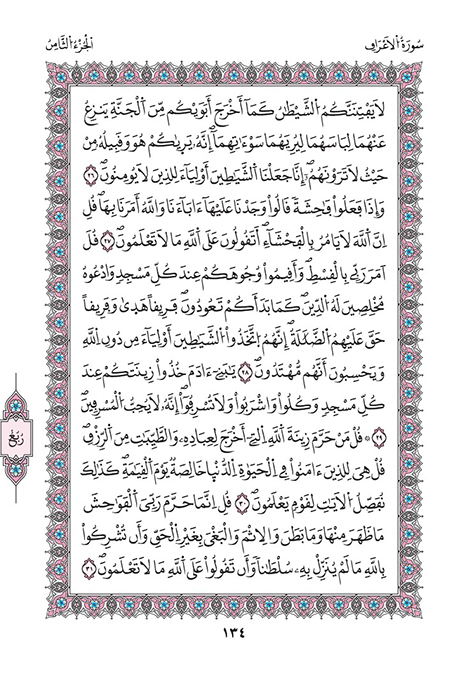 سُورَةُ الْأَعْرَافِ
الْجُزْءُ الثَّامِنُ
لَا يَفْتِنَنَّكُمُ الشَّيْطَٰنُ كَمَآ أَخْرَجَ أَبَوَيْكُم مِّنَ اَ۬لْجَنَّةِ يَنزِعُ
عَنْهُمَا لِبَاسَهُمَا لِيُرِيَهُمَا سَوْءَٰتِهِمَآۖ إِنَّهُۥ يَر۪يٰكُمْ هُوَ وَقَبِيلُهُۥ مِنْ
حَيْثُ لَا تَرَوْنَهُمُۥٓۖ إِنَّا جَعَلْنَا اَ۬لشَّيَٰطِينَ أَوْلِيَآءَ لِلذِينَ لَا يُومِنُونَۖ ٢٦
وَإِذَا فَعَلُوا۟ فَٰحِشَةً قَالُوا۟ وَجَدْنَا عَلَيْهَآ ءَابَآءَنَا وَاللَّهُ أَمَرَنَا بِهَاۖ قُلِ
اِنَّ اَ۬للَّهَ لَا يَامُرُ بِالْفَحْشَآءِۖ اَتَقُولُونَ عَلَى اَ۬للَّهِ مَا لَا تَعْلَمُونَۖ ٢٧ قُلَ
اَمَرَ رَبِّي بِالْقِسْطِۖ وَأَقِيمُوا۟ وُجُوهَكُمْ عِندَ كُلِّ مَسْجِدٍ وَادْعُوهُ
مُخْلِصِينَ لَهُ اُ۬لدِّينَۖ كَمَا بَدَأَكُمْ تَعُودُونَۖ فَرِيقاً هَد۪ىٰ وَفَرِيقاً
حَقَّ عَلَيْهِمُ اُ۬لضَّلَٰلَةُۖ إِنَّهُمُ اُ۪تَّخَذُوا۟ اُ۬لشَّيَٰطِينَ أَوْلِيَآءَ مِن دُونِ اِ۬للَّهِ
وَيَحْسِبُونَ أَنَّهُم مُّهْتَدُونَۖ ٢٨ يَٰبَنِےٓ ءَادَمَ خُذُوا۟ زِينَتَكُمْ عِندَ
كُلِّ مَسْجِدٍ وَكُلُوا۟ وَاشْرَبُوا۟ وَلَا تُسْرِفُوٓا۟ۖ إِنَّهُۥ لَا يُحِبُّ اُ۬لْمُسْرِفِينَۖ
٢٩ ۞ قُلْ مَنْ حَرَّمَ زِينَةَ اَ۬للَّهِ اِ۬لتِےٓ أَخْرَجَ لِعِبَادِهِۦ وَالطَّيِّبَٰتِ مِنَ اَ۬لرِّزْقِۖ
قُلْ هِيَ لِلذِينَ ءَامَنُوا۟ فِے اِ۬لْحَيَوٰةِ اِ۬لدُّنْي۪ا خَالِصَةٌ يَوْمَ اَ۬لْقِيَٰمَةِۖ كَذَٰلِكَ
نُفَصِّلُ اُ۬لْأٓيَٰتِ لِقَوْمٍ يَعْلَمُونَۖ ٣٠ قُلِ اِنَّمَا حَرَّمَ رَبِّيَ اَ۬لْفَوَٰحِشَ
مَا ظَهَرَ مِنْهَا وَمَا بَطَنَ وَالِاثْمَ وَالْبَغْيَ بِغَيْرِ اِ۬لْحَقِّ وَأَن تُشْرِكُوا۟
بِاللَّهِ مَا لَمْ يُنَزِّلْ بِهِۦ سُلْطَٰناً وَأَن تَقُولُوا۟ عَلَى اَ۬للَّهِ مَا لَا تَعْلَمُونَۖ ٣١
رُبُع
١٣٤